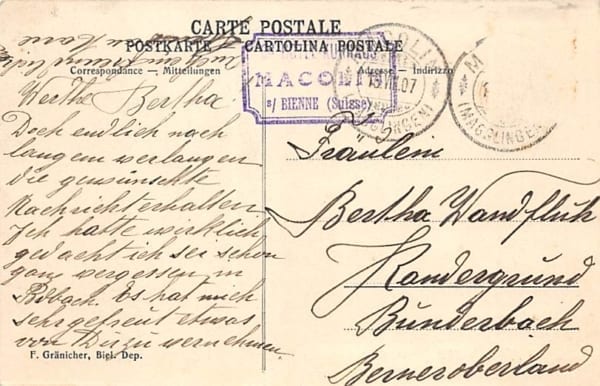 CARTE POSTALE
POSTKARTE CARTOLINA POSTALE
Correspondance — Mitteilungen
Adresse — Indirizzo
KURHAUS
MACOLIN
s/ BIENNE (Suisse)
MACOLIN
VII.07
(MAGGLINGEN)
(MAGGLINGEN)
Werthe Bertha.
Doch endlich nach
langem verlangen
die gewünschte
Nachricht erhalten.
Ich hatte wirklich
gedacht ich sei schon
ganz vergessen in
Es hat mich
sehr gefreut etwas
von Dir zu vernehmen.
Fräulein
Bertha Wandfluh
Kandergrund
Bunderbach
Berneroberland
F. Gränicher, Biel. Dep.